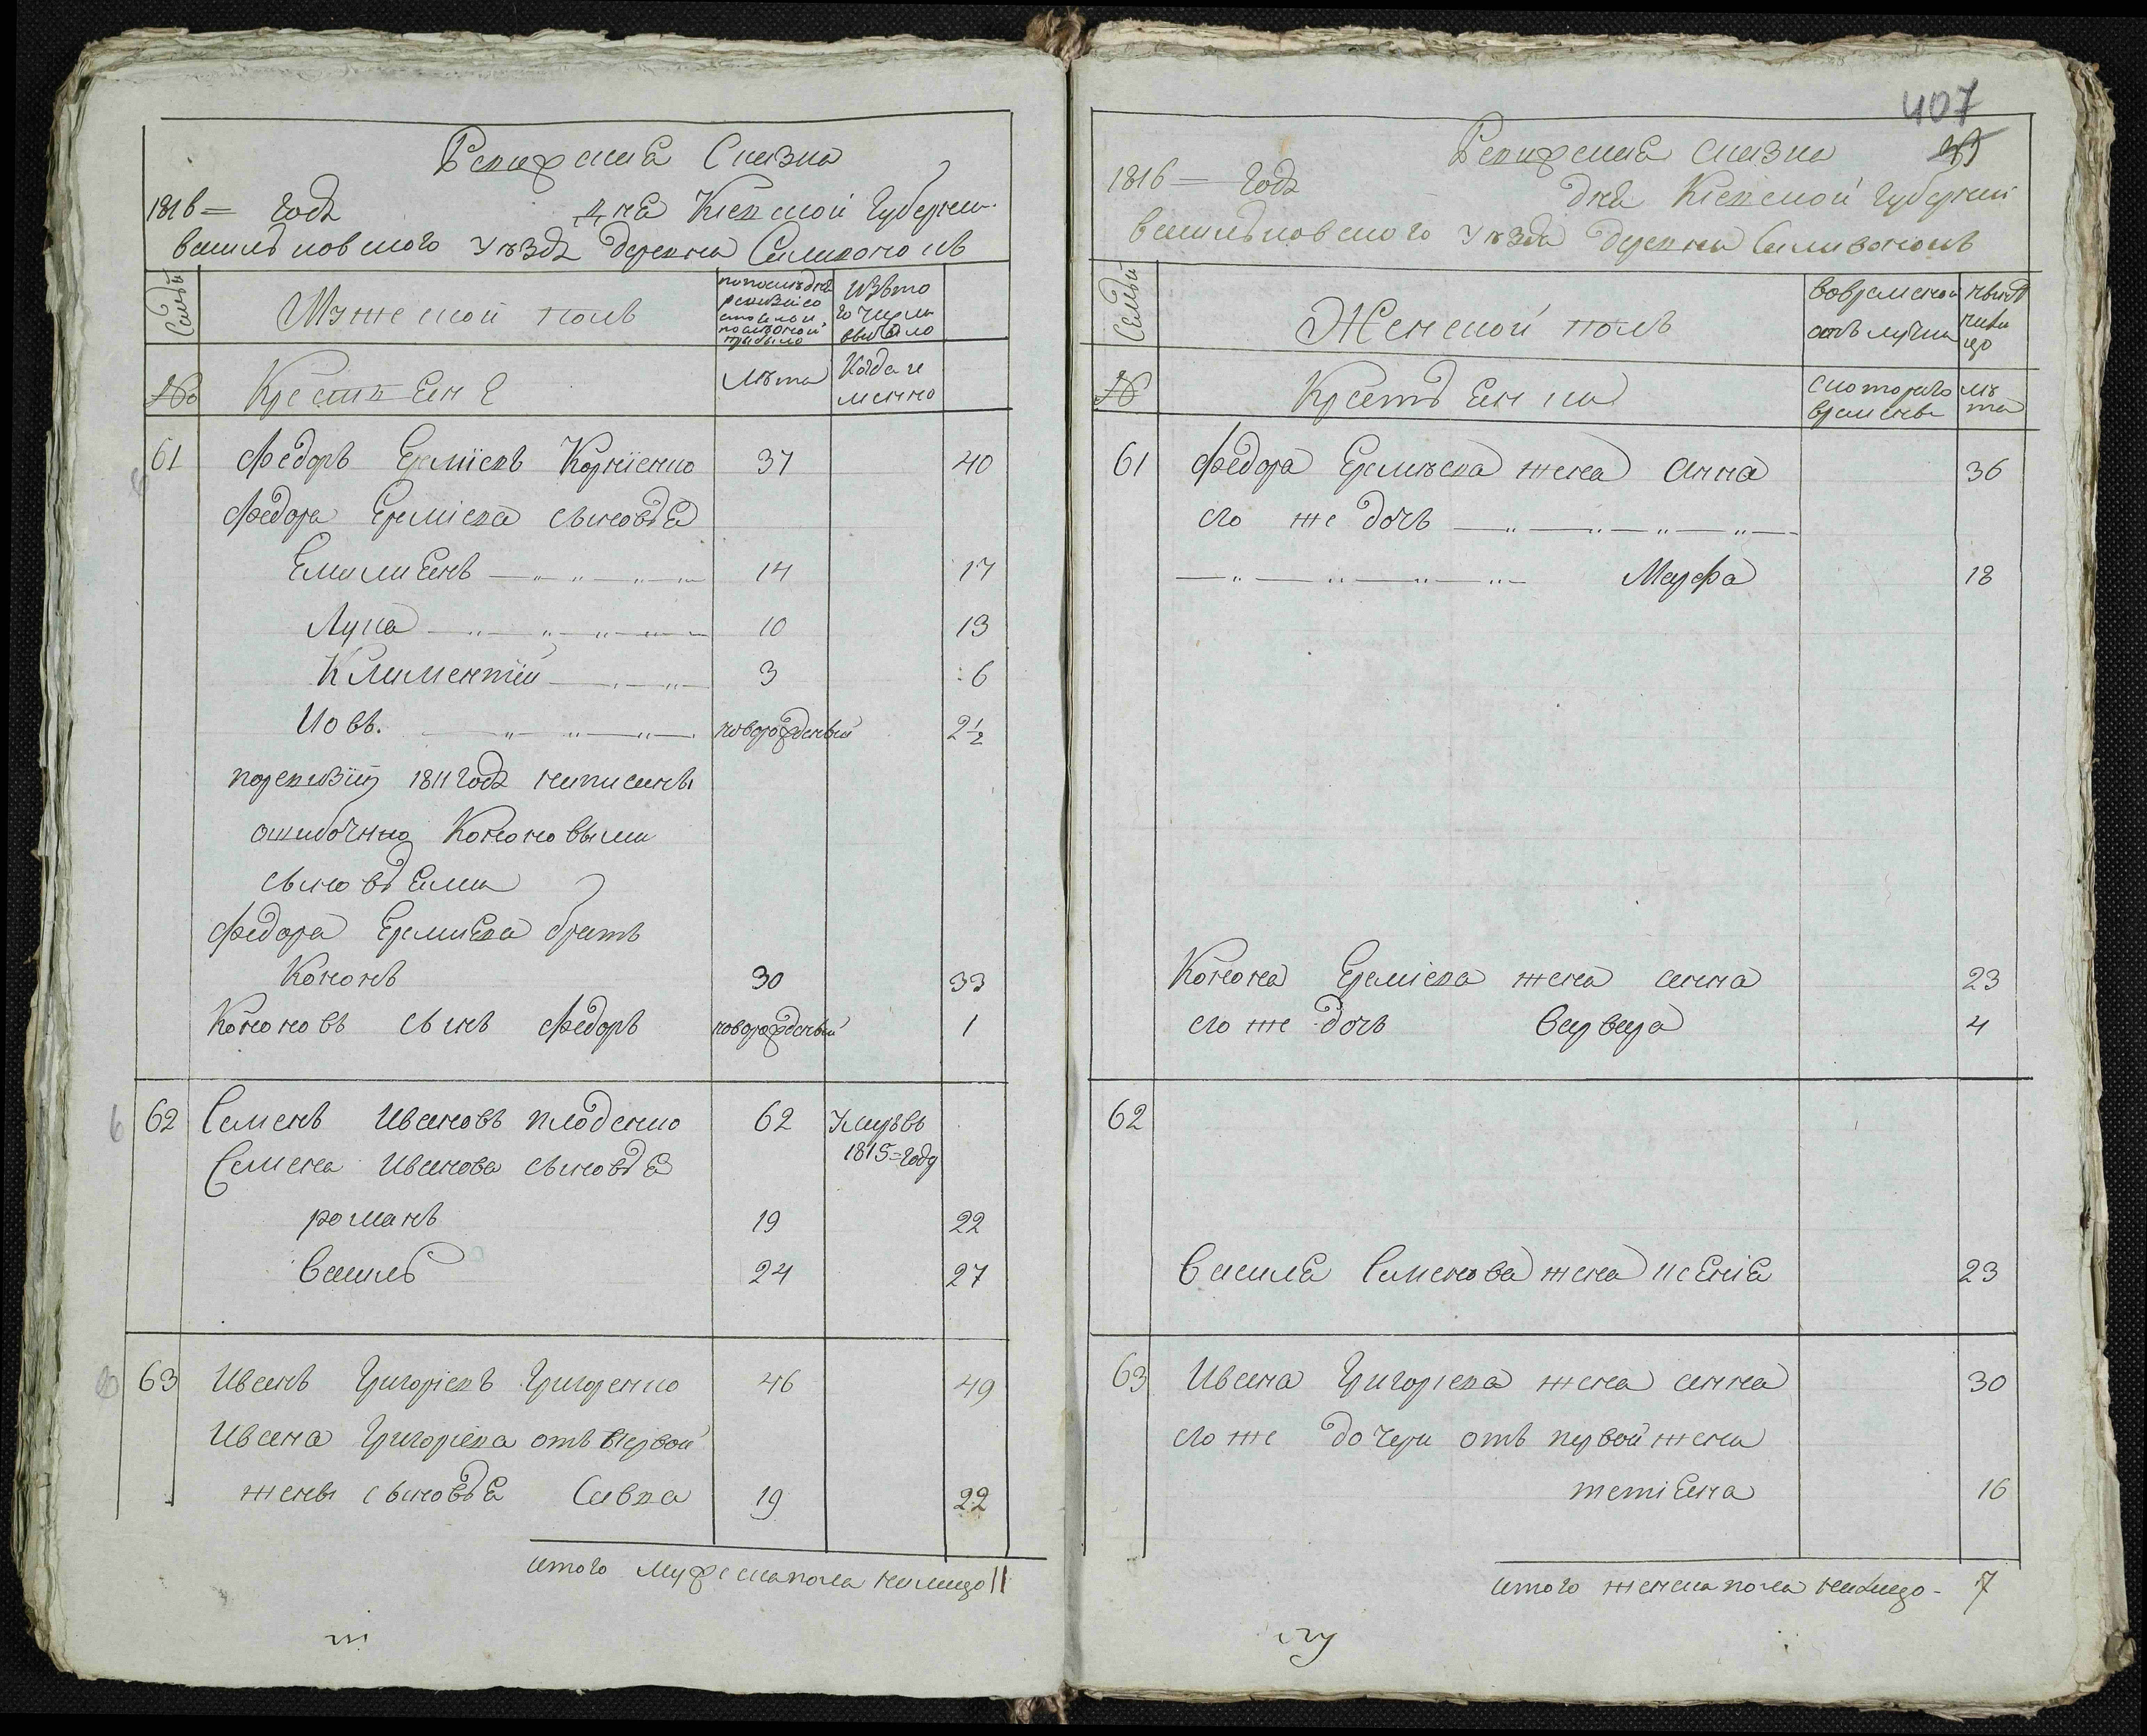 Ревижская Сказка
1816 = года дня Киевской Губернии
васильковского Уезда деревни Саливонокъ
Семьи
Мужеской полъ
по последней ревизии состояло и после оной прибыло
Изъ того числа выбыло
№
Крестьяне
Лѣта
Когда именно
61 Федоръ Еремiевъ Корнiенко 37 40
Федора Еремiева сыновья
Емилианъ 14 17
Лука 10 13
Климентiй 3 6
Иовъ. новорожденный 2 1/2
по ревизiи 1811 года написаны
ошибочно Кононовыми
сыновьями
Федора Еремиева братъ
Кононъ 30 33
Кононовъ сынъ Федоръ новорожденный 1
62 Семенъ Ивановъ Плоденко 62 Умръ въ
1815 = году
Семена Иванова сыновья
романъ 19 22
Василь 24 27
63 Иванъ Григорiевъ Григоренко 46 49
Ивана Григорiева отъ первой
жены сыновья Савва 19 22
итого мужеска пола налицо 11
407
Ревижская сказка
1816 = года дня Киевской губернии
васильковского Уезда деревни Саливонокъ
Семьи
Женской полъ
во временной отълучки
ныне налицо
№
Крестьянка
с которого времени
лѣта
61 Федора Еремѣева жена Анна 36
его же дочь
Марфа 18
Конона Еремiева жена анна 23
его же дочь варвара 4
62
Василя Семенова жена ксенiя 23
63 Ивана Григорiева жена анна 30
его же дочери отъ первой жены
татiяна 16
итого женска пола налицо - 7